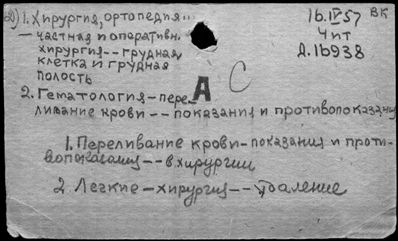 1. Хирургия, ортопедия
16.IV 57 ВК
— частная и оперативн.
Чит
хирургия -- грудная
Д.16938
клетка и грудная
полость
А С
2. Гематология - пере-
ливание крови -- показания и противопоказания
1. Переливание крови - показания и проти-
вопоказания -- в хирургии
2. Легкие - хирургия -- удаление